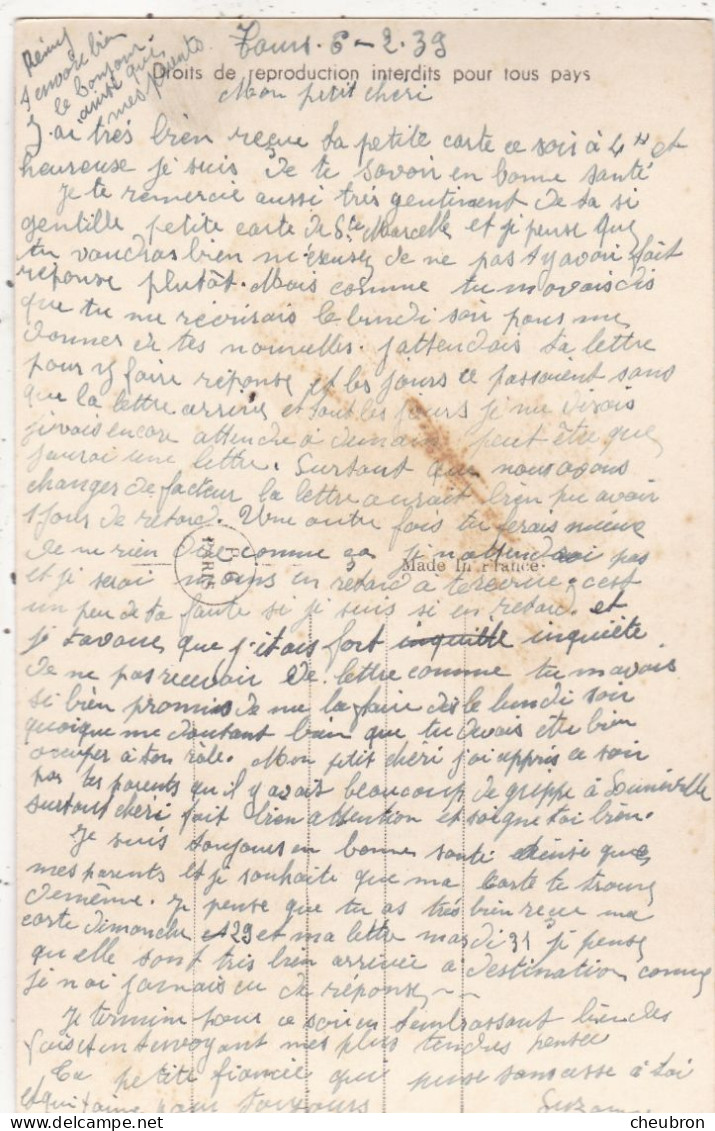 Tours. 6-2.39
Rémy
t'envoie bien
le bonjour
ainsi que
mes parents
Droits de reproduction interdits pour tous pays
Mon petit chéri
J.ai très bien reçue ta petite carte ce soir à 4h et
heureuse je suis de te savoir en bonne santé
Je te remercie aussi très gentiment de ta si
gentille petite carte de Ste Marcelle et je pense que
tu voudras bien m'excuser de ne pas t'y avoir fait
réponse plutôt. Mais comme tu m'avais dis
que tu me récrirais le lundi soir pour me
donner de tes nouvelles. J'attendais ta lettre
pour y faire réponse et les jours ce passaient sans
que la lettre arrive et tout les jours je me disais
je vais encore attendre à demain peut être que
j'aurai une lettre. Surtout que nous avons
changer de facteur la lettre aurait bien pu avoir
1 jour de retard. Une autre fois tu ferais mieux
de ne rien dire comme ça je n'attendrai pas
PARIS
Made In France
et je serai moins en retard à te écrire, c'est
un peu de ta faute si je suis si en retard. et
je t'avoue que j'étais fort inquiète
de ne pas recevoir de lettre comme tu m'avais
si bien promis de me la faire dès le lundi soir
quoique me doutant bien que tu devais être bien
occuper à ton rôle. Mon petit chéri j'ai appris ce soir
par tes parents qu'il y avait beaucoup de grippe à Lunéville
surtout chéri fait bien attention et soigne toi bien.
Je suis toujours en bonne santé ainsi que
mes parents et je souhaite que ma carte te trouve
de même. Je pense que tu as très bien reçue ma
carte dimanche 29 et ma lettre mardi 31 je pense
qu'elle sont très bien arrivée à destination comme
je n'ai jamais eu de réponse
Je termine pour ce soir en t'embrassant bien des
fois et en t'envoyant mes plus tendres pensée
Ta petite fiancée qui pense sans cesse à toi
et qui t'aime pour toujours Suzanne